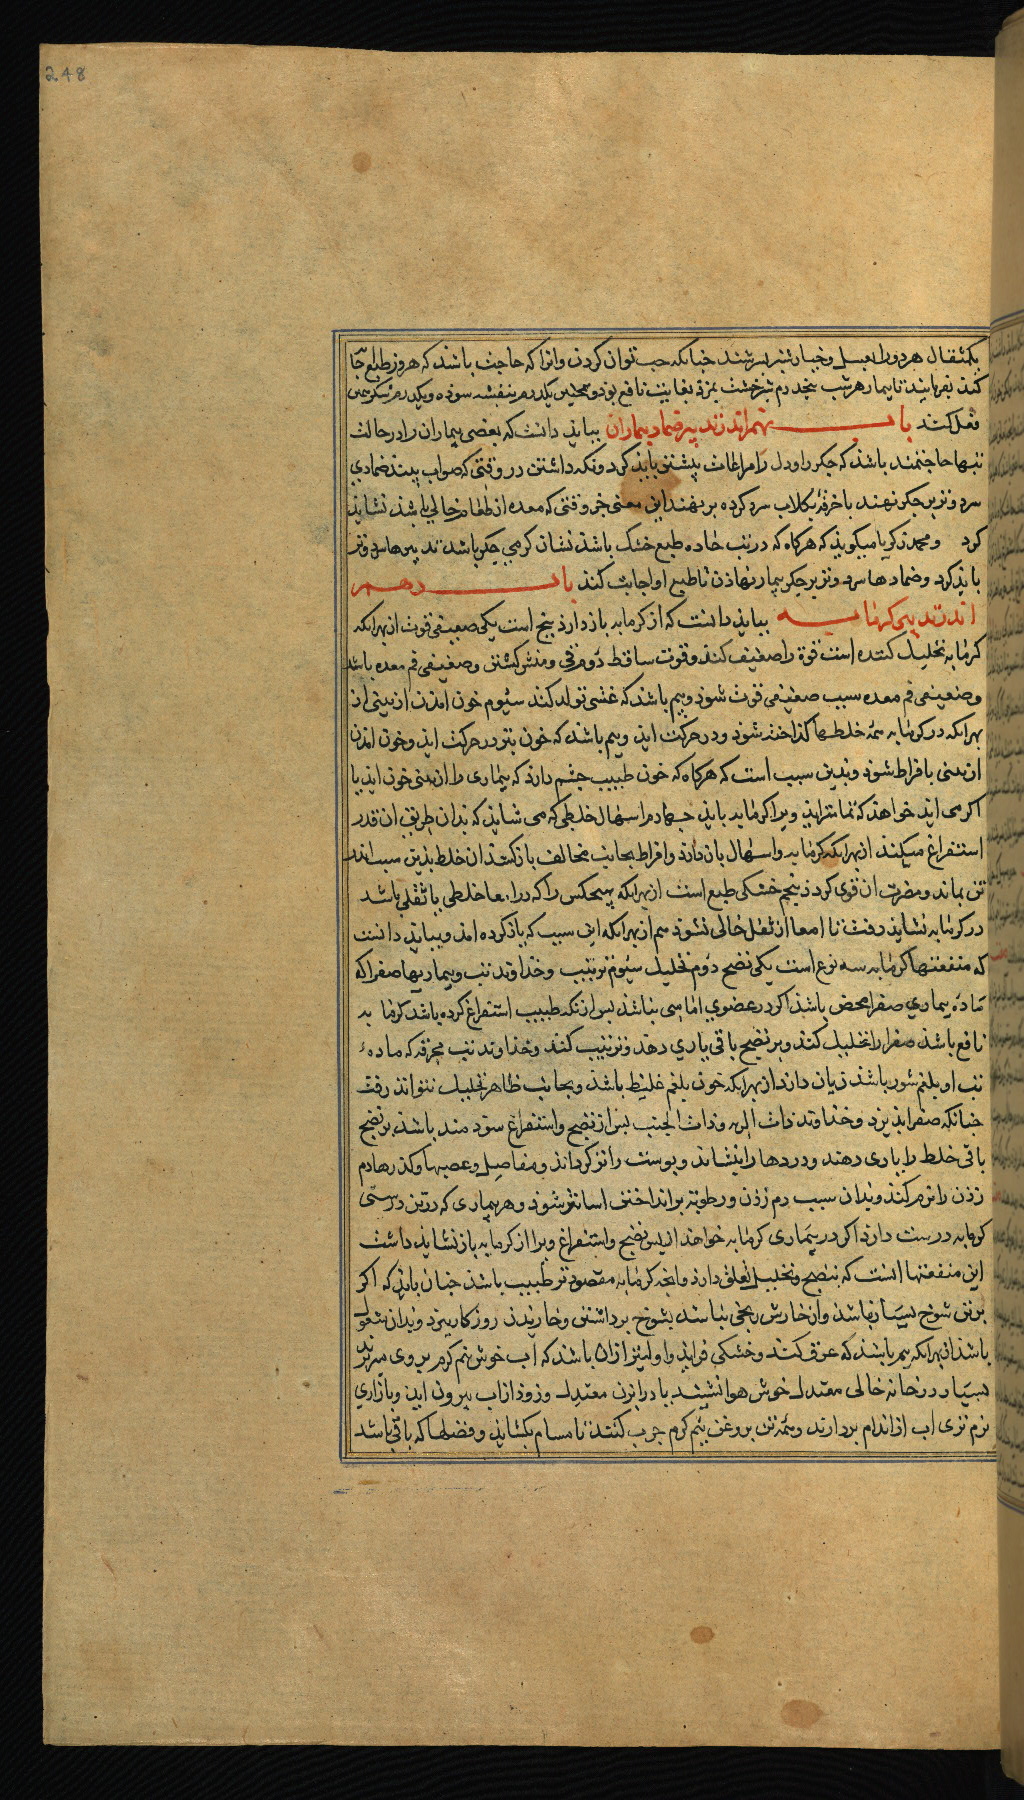 248
یکمثقال هر دو را بعسل و خیارشنبر بسرشند چنانکه حب توان کردن و آنرا که حاجت باشد که هر روز طبع اجا
کند بفرمایند تا بیمار هر شب پنجدرم شیرخشت بمزد بغایت نافع بود و همچنین یکدرم بنفشه سوده و یکدرم شکر همین
فعل کند باب نهم اندر تدبیر ضماد بیماران بباید دانست که بعضی بیماران را در حالت
تبها حاجتمند باشد که جکر را و دل را مراعات بیشتر باید کرد و نکه داشتن در وقتی که صواب بیند ضمادی
سرد و تر بر جکر نهند یا خرقه بکلاب سرد کرده بر نهند این معنی جز وقتی که معده از طعام خالی باشد نشاید
کرد و محمد زکریا میکوید که هرکاه که در تب حاده طبع خشک باشد نشان کرمی جکر باشد تدبیرها سرد و تر
باید کرد و ضمادها سرد و تر بر جکر بیمار نهاذن تا طبع او اجابت کند باب دهم
اندر تدبیر کرمابه بباید دانست که از کرمابه باز دارد پنج است یکی ضعیفی قوت از بهر انکه
کرمابه تحلیل کننده است قوة را ضعیف کند و قوت ساقط دوم قی و منش کشتن و ضعیفی فم معده باشد
و ضعیفی فم معده سبب ضعیفی قوت شود و بیم باشد که غشی تولد کند سئیوم خون امدن از بینی از
بهر انکه در کرمابه همه خلطها کداخته شود و در حرکت اید و بیم باشد که خون بتر در حرکت اید و خون امدن
از بینی بافراط شود و بدین سبب است که هرکاه که خون طبیب چشم دارد که بیماری را از بینی خون اید یا
اکر می اید خواهد که تمامتر اید ویرا کرمابه باید چهارم اسهال خلطی که می شاید که بدان طریق ان قدر
استفراغ میکند از بهر انکه کرمابه و اسهال باز دارد و افراط بجانب مخالف باز کشد ان خلط بدین سبب اندر
تن بماند و مضرت ان قوی کردد پنجم خشکی طبع است از بهر انکه هیچکس را که در امعا خلطی یا ثقلی باشد
در کرمابه نشاید رفت تا امعا از ثقل خالی نشود هم از بهر انکه این سبب که یاذ کرده امد و بباید دانست
که منفعتها کرمابه سه نوع است یکی نضج دوم تحلیل سیوم ترتیب و خداوند تب و بیماریها صفرا که
ماده بیماری صفرا محض باشد اکر در عضوی اماسی نباشد بس از انکه طبیب استفراغ کرده باشد کرما به
نافع باشد صفرا را تحلیل کند و بر نضج باقی یاری دهد و ترتیب کند و خداوند تب محرقه که ماده ء
تب او بلغم شور باشد زیان دارد از بهر انکه خون بلغم غلیظ باشد و بجانب ظاهر تحلیل نتواند رفت
چنانکه صفرا پذیرد و خداوند ذات الریه و ذات الجنب بس از نضج و استفراغ سود مند باشد بر نضج
باقی خلط را یاری دهد و دردها را بنشاند و بوست را نرم کرداند و مفاصل و عصبها و کذرها دم
زدن را نرم کند و بدان سبب دم زدن و رطوبة بر انداختن اسانتر شود و هر بیماری که در تن درستی
کرمابه درست دارد اکر در بیماری کرمابه خواهد از پس نضج و استفراغ ویرا از کرمابه باز نشاید داشت
این منفعتها است که بنضج و تحلیل تعلق دارد و انچه کرمابه مقصود تر طبیب باشد چنان باید که اکر
بر تن شوخ بسیار باشد و از خارش رنجی نباشد بشوخ برداشتن و خاریدن روزکار نبرد و بدان مشغول
باشد از بهر انکه بیم باشد که عرق کند و خشکی فزاید و اولیتر از ان باشد که اب خوش نیم کرم بر وی میریزد
بسیار در خانه خالی معتدل خوش هوا نشیند یا در ابزن معتدل و زود از اب بیرون اید و بازاری
نرم تری اب از اندام بردارند و همه تن بروغن نیم کرم چرب کنند تا مسام بکشاید و فضلها که باقی باشد